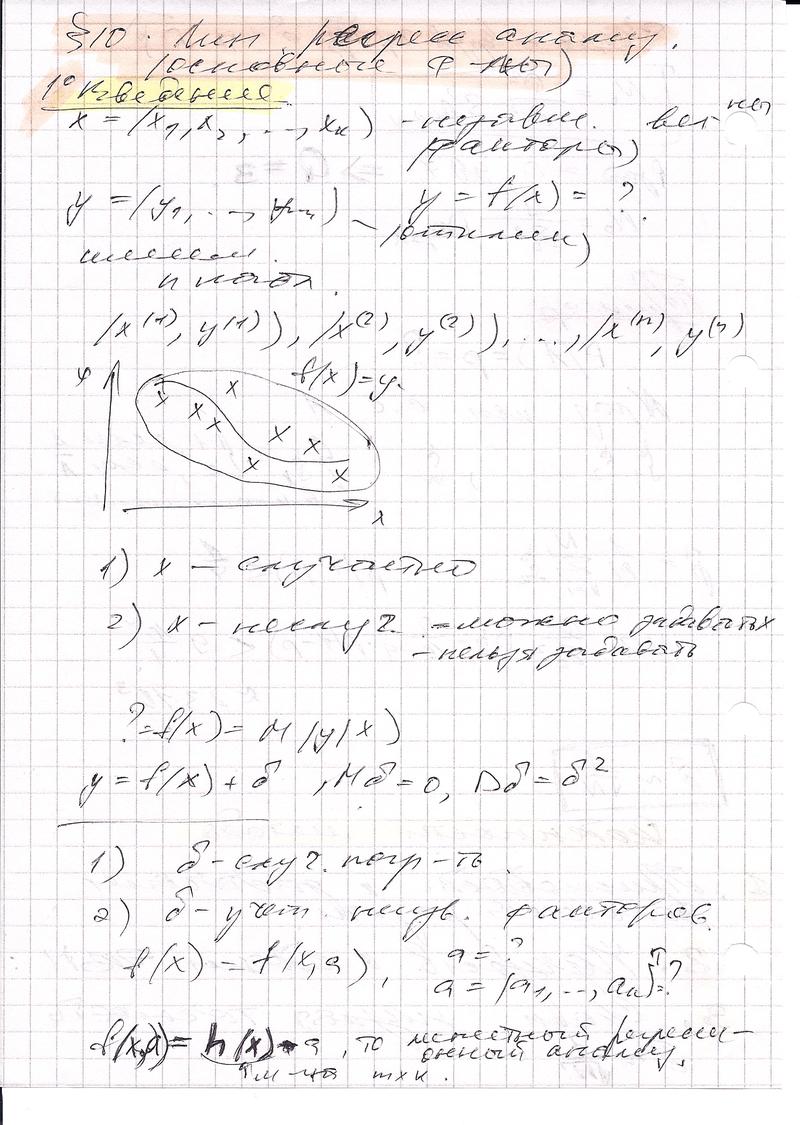 §10. Лин. регресс анализ.
(основные ф-лы)
1° Введение
x = (x₁, x₂, ..., xₖ) - независ. вел-ны
(факторы)
y = (y₁, ..., yₘ) - y = f(x) = ?
(отклики)
имеем
n набл.
(x⁽¹⁾, y⁽¹⁾), (x⁽²⁾, y⁽²⁾), ..., (x⁽ⁿ⁾, y⁽ⁿ⁾)
y
f(x)=y.
x
1) x – случайно
2) x – неслуч. - можно задавать
- нельзя задавать
? = f(x) = M(y|x)
y = f(x) + δ, Mδ = 0, Dδ = δ²
1) δ - случ. погр-ть.
2) δ - учит. неизв. факторов.
f(x) = f(x,a), a = ?
a = (a₁, ..., aₖ)ᵀ = ?
f(x,a) = h(x)·a, то регресси-
онный анализ.
m x k.